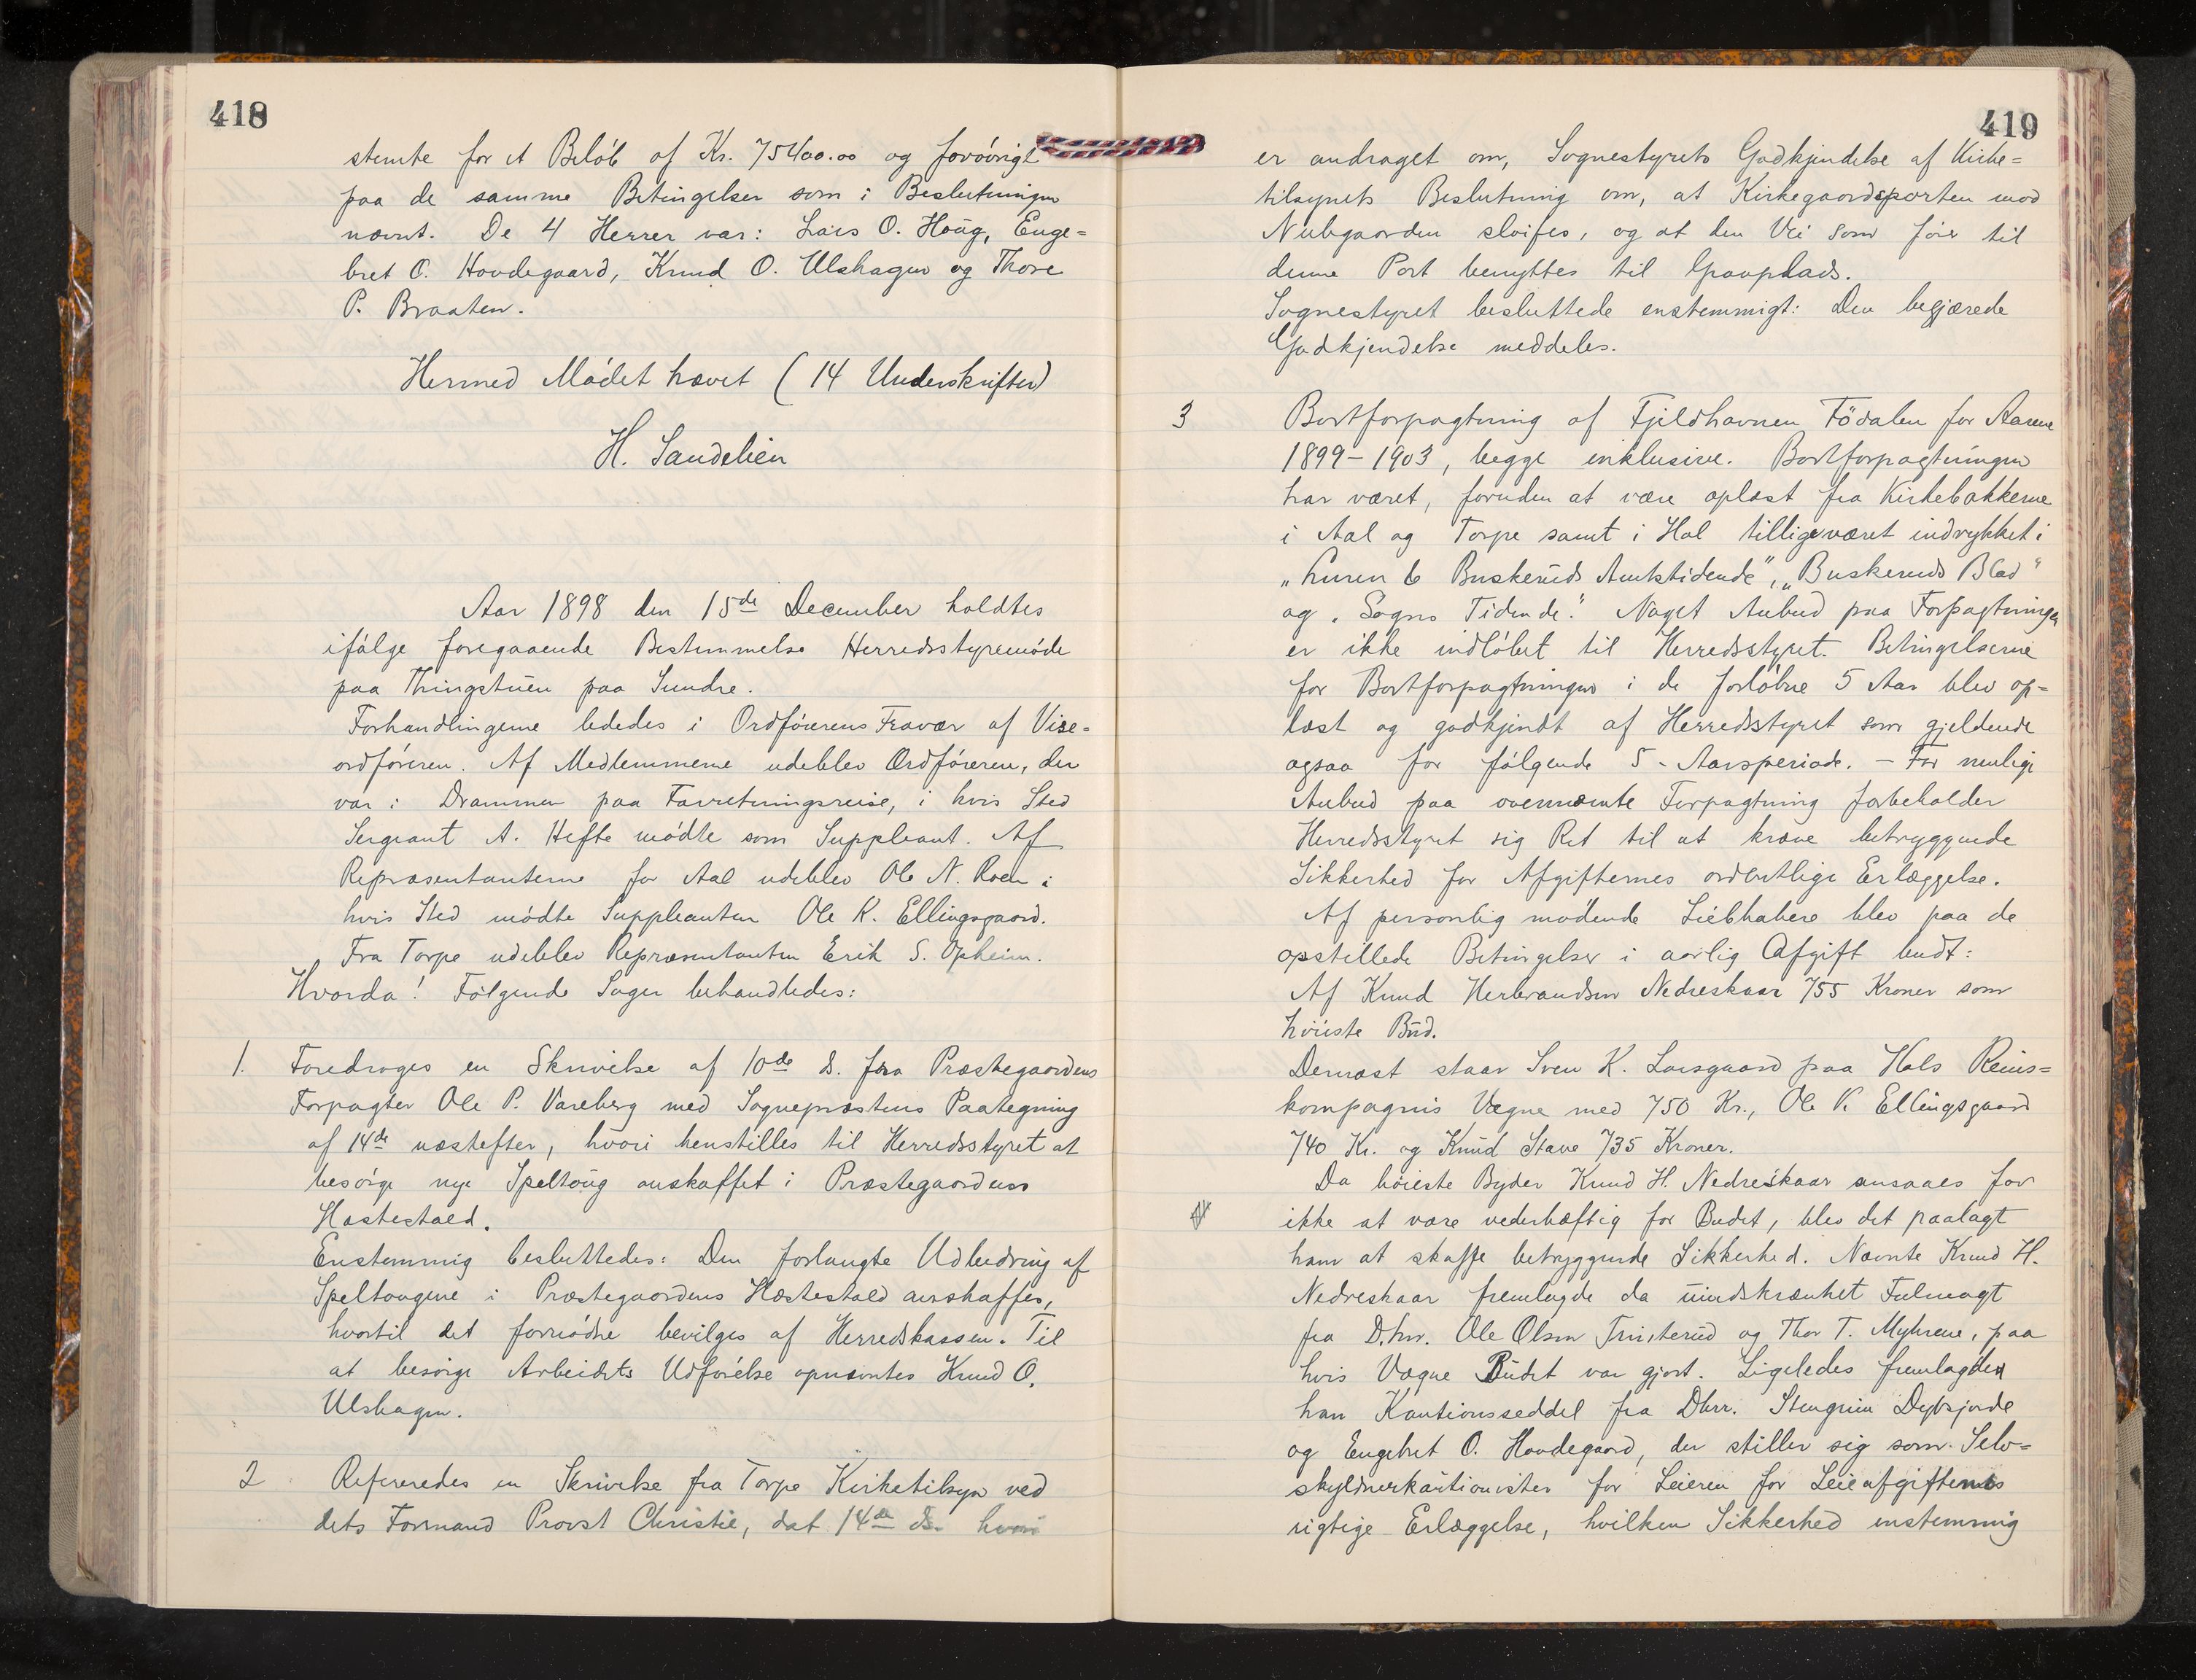 418
stemte for et Beløb af Kr. 75400.00 og forøvrigt
paa de samme Betingelser som i Beslutningen
nævnt. De 4 Herrer var: Lars O. Haug, Enge-
bret O. Hovdegaard, Knud O. Ulshagen og Thore
P. Braaten.
Hermed Mødet hævet (14 Underskrifter)
H. Sandelien
Aar 1898 den 15de December holdtes
ifølge foregaaende Bestemmelse Herredsstyremøde
paa Thingstuen paa Sundre.
Forhandlingerne lededes i Ordførerens Fravær af Vise-
ordføreren. Af Medlemmerne udeblev Ordføreren, der
var i Drammen paa Forretningsreise, i hvis Sted
Sergeant A. Hefte mødte som Suppleant. Af
Repræsentanterne for Aal udeblev Ole N. Roen i
hvis Sted mødte Suppleanten Ole K. Ellingsgaard.
Fra Torpe udeblev Repræsentanten Erik S. Opheim.
Hvorda! Følgende Sager behandledes:
1. Foredroges en Skrivelse af 10de ds. fra Præstegaardens
Forpagter Ole P. Vareberg med Sognepræstens Paategning
af 14de næstefter, hvori henstilles til Herredsstyret at
besørge nye Speltoug anskaffet i Præstegaardens
Hestestald.
Enstemmig besluttedes: Den forlangte Udbedring af
Speltougene i Præstegaardens Hestestald anskaffes,
hvortil det fornødne bevilges af Herredskassen. Til
at besørge Arbeidets Udførelse opnævntes Knud O.
Ulshagen.
2 Refereredes en Skrivelse fra Torpe Kirketilsyn ved
dets Formand Provst Christie, dat. 14de ds. hvori
419
er andraget om, Sognestyrets Godkjendelse af Kirke-
tilsynets Beslutning om, at Kirkegaardsporten mod
Nubgaarden sløifes, og at den Vei som fører til
denne Port benyttes til Gravplads.
Sognestyret besluttede enstemmigt: Den begjærede
Godkjendelse meddeles.
3 Bortforpagtning af Fjeldhavnen Fødalen for Aarene
1899-1903, begge inklusive. Bortforpagtningen
har været, foruden at være oplæst fra Kirkebakkerne
i Aal og Torpe samt i Hol tilligeværet indrykket i
"Luren & Buskeruds Amtstidende", "Buskeruds Blad"
og "Sogns Tidende." Noget Anbud paa Forpagtningen
er ikke indløbet til Herredsstyret. Betingelserne
for Bortforpagtningen i de forløbne 5 Aar blev op-
læst og godkjendt af Herredsstyret som gjeldende
ogsaa for følgende 5-Aarsperiode. - For mulige
Anbud paa ovennævnte Forpagtning forbeholder
Herredsstyret sig Ret til at kræve betryggende
Sikkerhed for Afgifternes ordentlige Erlæggelse.
Af personlig mødende Liebhabere blev paa de
opstillede Betingelser i aarlig Afgift budt:
Af Knud Herbrandsen Nedreskaar 755 Kroner som
høieste Bud.
Dernæst staar Sven K. Larsgaard paa Hols Reins-
kompagnis Vegne med 750 Kr., Ole K. Ellingsgaard
740 Kr. og Knud Stave 735 Kroner.
Da høieste Byder Knud H. Nedreskaar ansaaes for
ikke at være vederhæftig for Budet, blev det paalagt
ham at skaffe betryggende Sikkerhed. Nævnte Knud H.
Nedreskaar fremlagde da uindskrænket Fulmagt
fra D.hrr. Ole Olsen Trinterud og Thor T. Myhrene, paa
hvis Vegne Budet var gjort. Ligeledes fremlagde
han Kautionsseddel fra Dhrr. Stengrim Dybsjorde
og Engebret O. Hovdegaard, der stiller sig som Selv-
skyldnerkautionister for Leieren for Leieafgifternes
rigtige Erlæggelse, hvilken Sikkerhed enstemmig